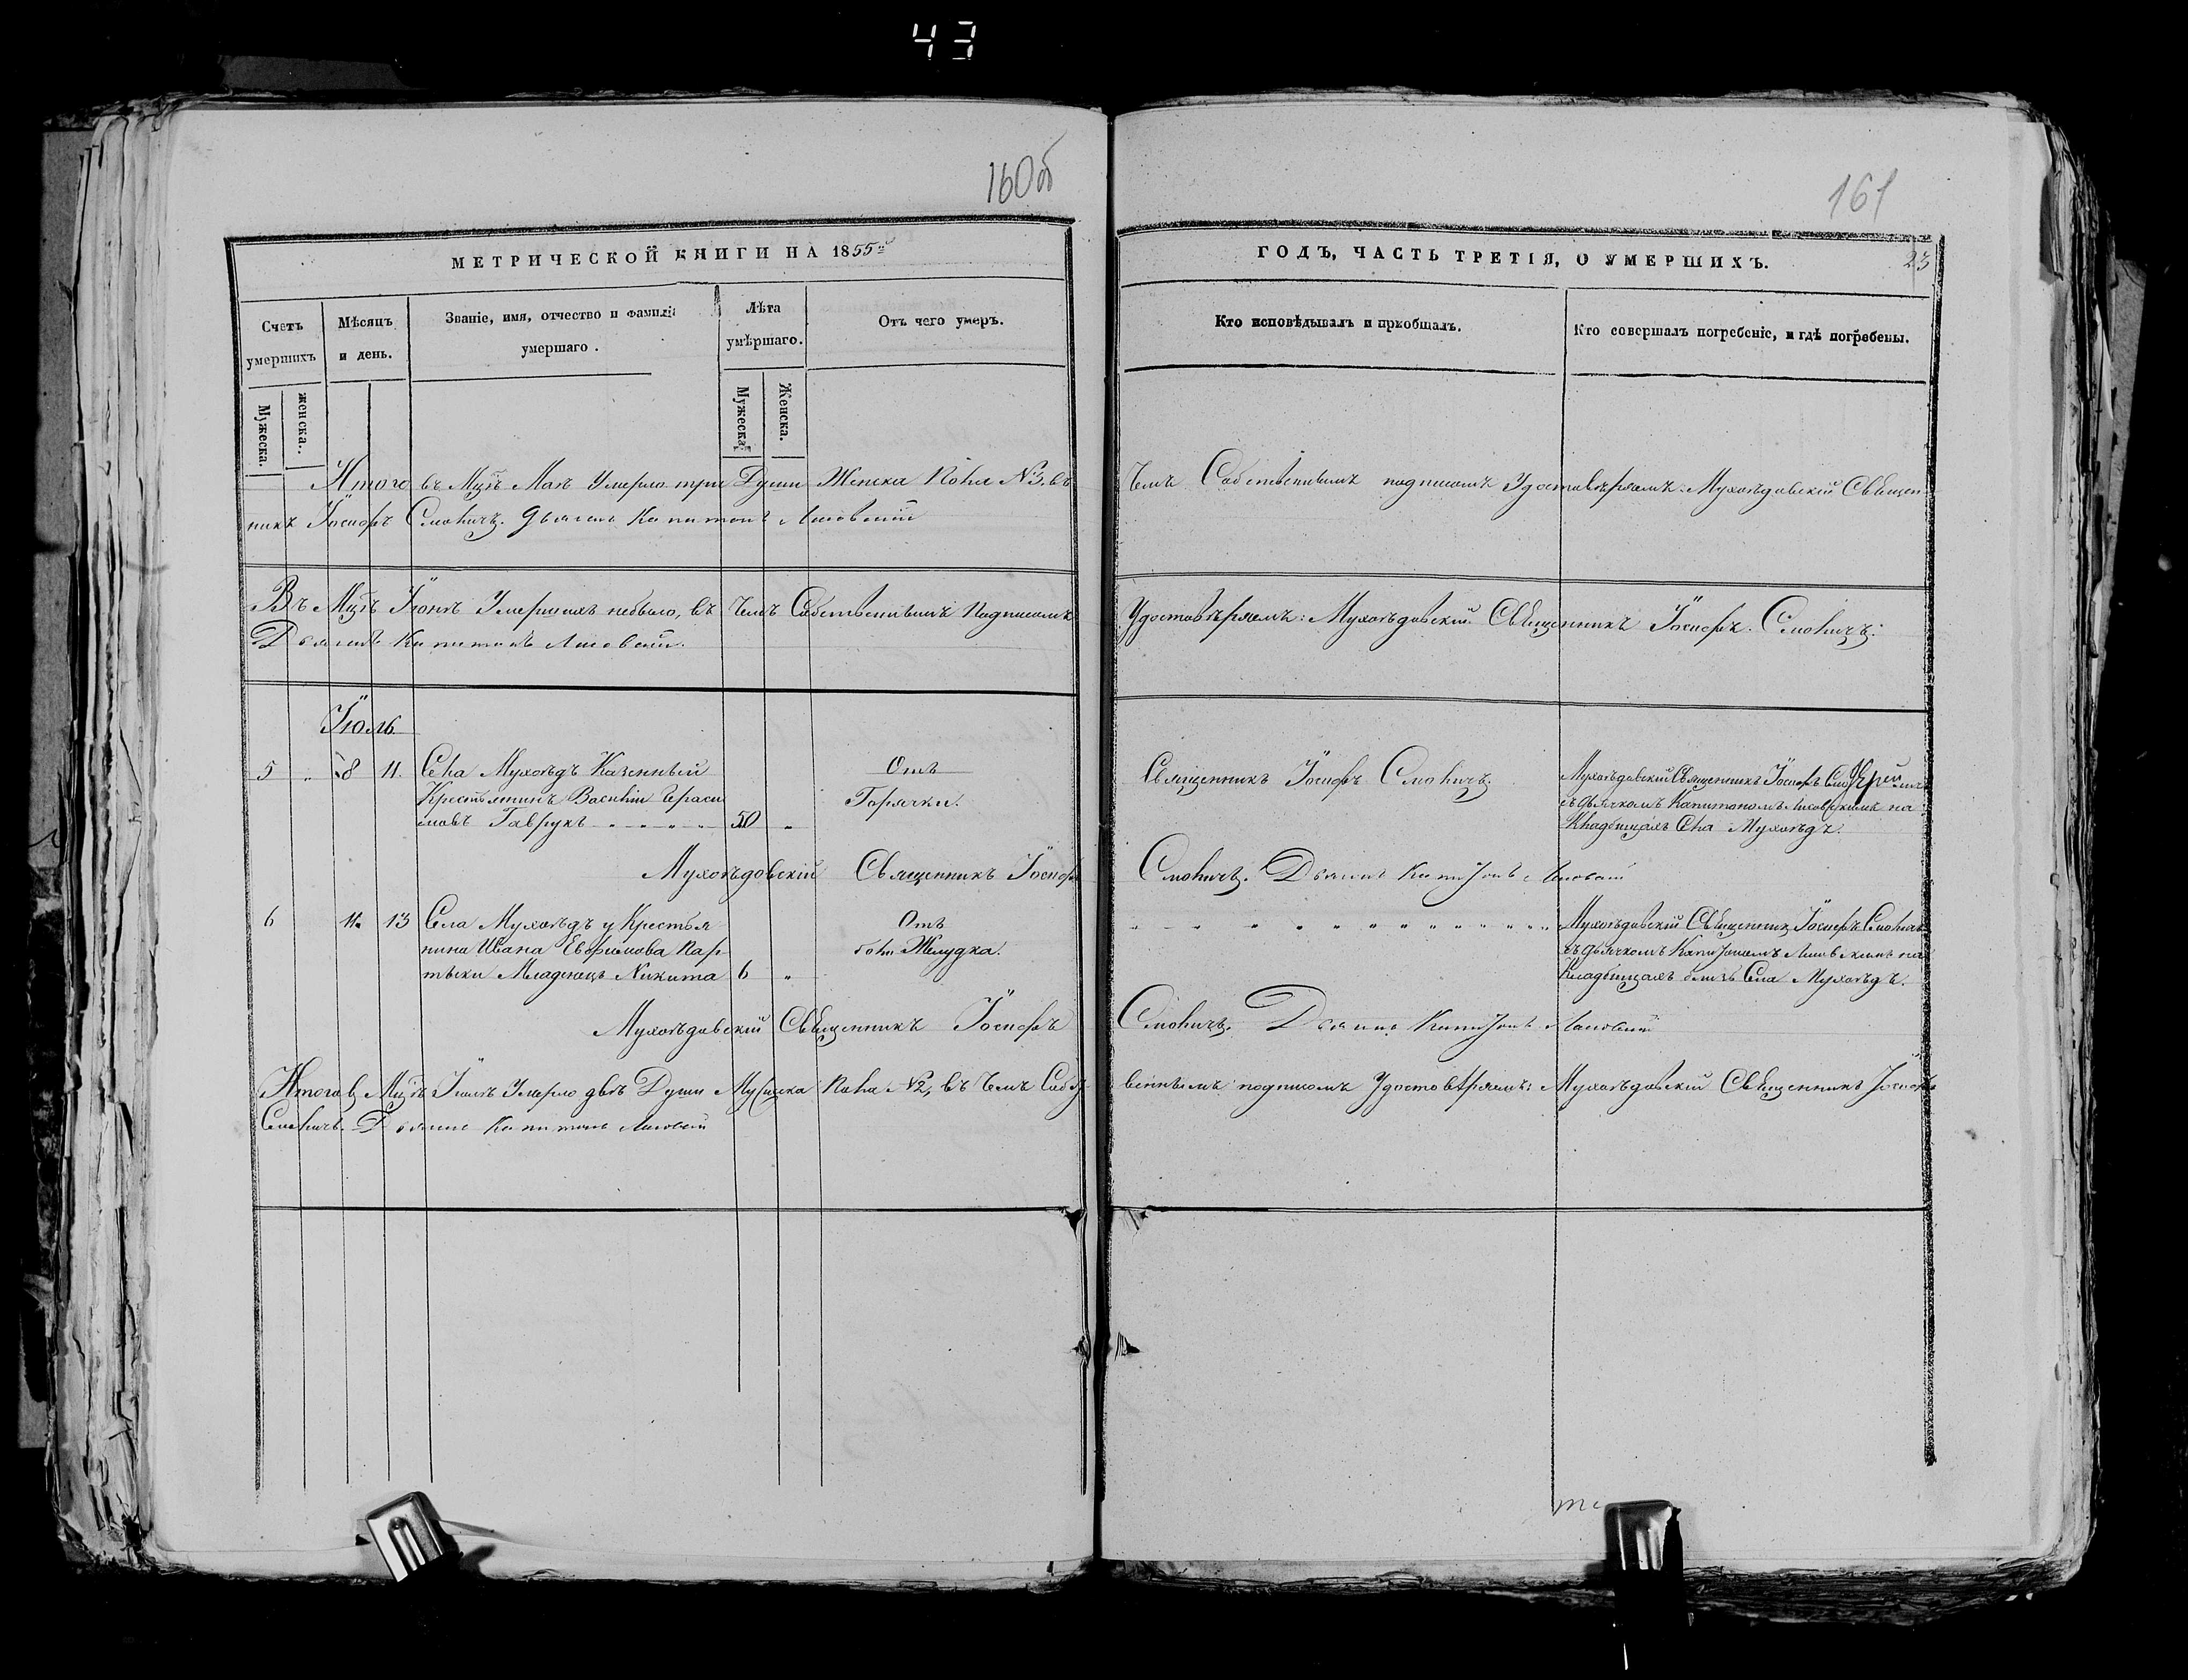 43
160об
161
МЕТРИЧЕСКОЙ КНИГИ НА 1855й
ГОДЪ, ЧАСТЬ ТРЕТІЯ, О УМЕРШИХЪ.
23
Счетъ умершихъ
Мѣсяцъ и день.
Званіе, имя, отчество и фамилія умершаго.
Лѣта умѣршаго.
Отъ чего умеръ.
Кто исповѣдывалъ и пріобщалъ.
Кто совершалъ погребеніе, и гдѣ погребены.
Мужеска.
женска.
Мужеска
Женска.
Итого въ Мцѣ Маѣ Умерло три Души Женска Пола №3. въ
Чемъ Собственнымъ подписомъ Удостовѣряемъ: Мухоѣдовскій Священ
никъ Іосифъ Смоличъ. Дьячекъ Капитонъ
Въ Мцѣ Іюнѣ Умершихъ небыло, въ Чемъ Собственнымъ Подписомъ
Удостовѣряемъ: Мухоѣдовскій Священникъ Іосифъ Смоличъ:
Дьячекъ Капитонъ
Іюль
5 „ 8 11. Села Мухоѣдъ Казенный
Крестьянинъ Василій Гераси
мовъ Гаврукъ 50 „
Отъ
Горячки.
Священникъ Іосифъ Смоличъ.
Мухоѣдовскій Священникъ Іосифъ
съ Дьячкомъ Капитономъ на
Кладбищахъ Села Мухоѣдъ.
Мухоѣдовскій Священникъ Іосифъ
Смоличъ. Дьячекъ Капитонъ
6 11. 13 Села Мухоѣдъ у Крестья
нина Ивана Евфимова Пар
тыки Младенецъ Никита 6 „
Отъ
боли Желудка.
Мухоѣдовскій Священникъ Іосифъ Смоличъ
съ Дьячкомъ Капитономъ на
Кладбищахъ близъ Села Мухоѣдъ.
Мухоѣдовскій Священникъ Іосифъ
Смоличъ. Дьячекъ Капитонъ
Итого въ Мцѣ Іюлѣ Умерло двѣ Души Мужеска Пола №2, въ Чемъ Собст
веннымъ подписомъ Удостовѣряемъ: Мухоѣдовскій Священникъ Іосифъ
Смоличъ. Дьячекъ Капитонъ